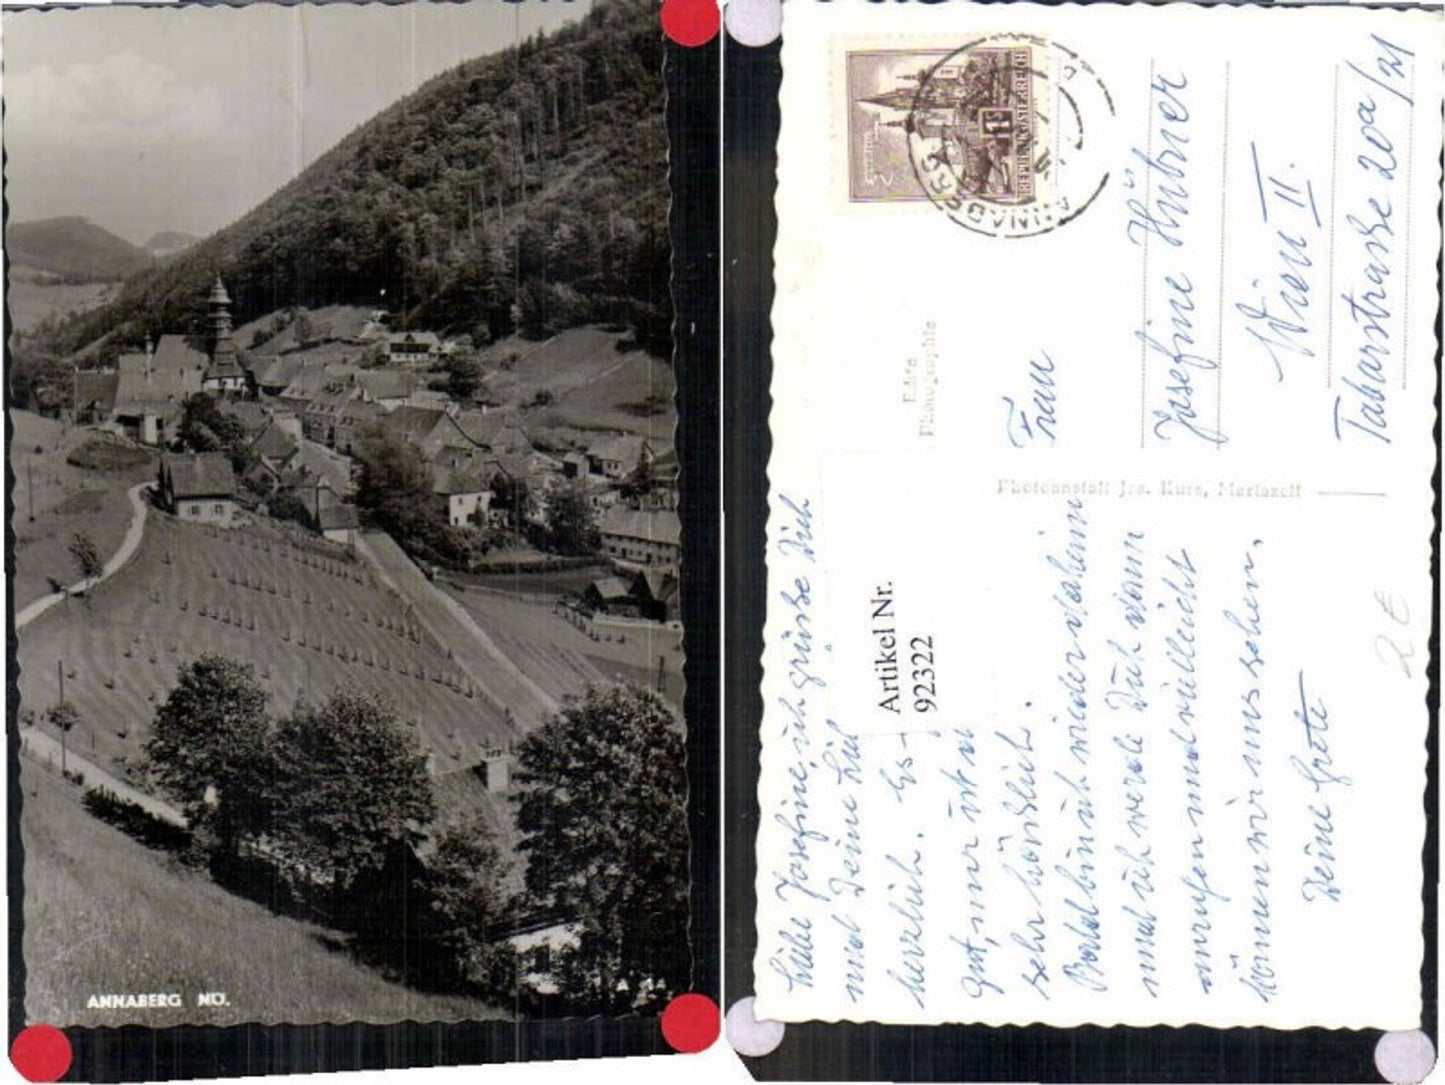 ANNABERG NÖ.
REPUBLIK ÖSTERREICH
ANNABERG
Echte
Photographie
Frau
Josefine Hübner
Wien II.
Taborstraße 20a/21
Photoanstalt Jos. Kuss, Mariazell
Artikel Nr.
92322
Liebe Josefine, ich grüße Dich
und Deine
herzlich. Es
gut, nur ist es
sehr
Bald bin ich wieder daheim
und ich werde Dich dann
anrufen und vielleicht
können wir uns sehen.
Deine Grete
2 €